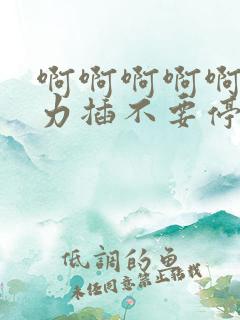 啊啊啊啊啊
力插不要停
低調的魚
未任同意禁止转找